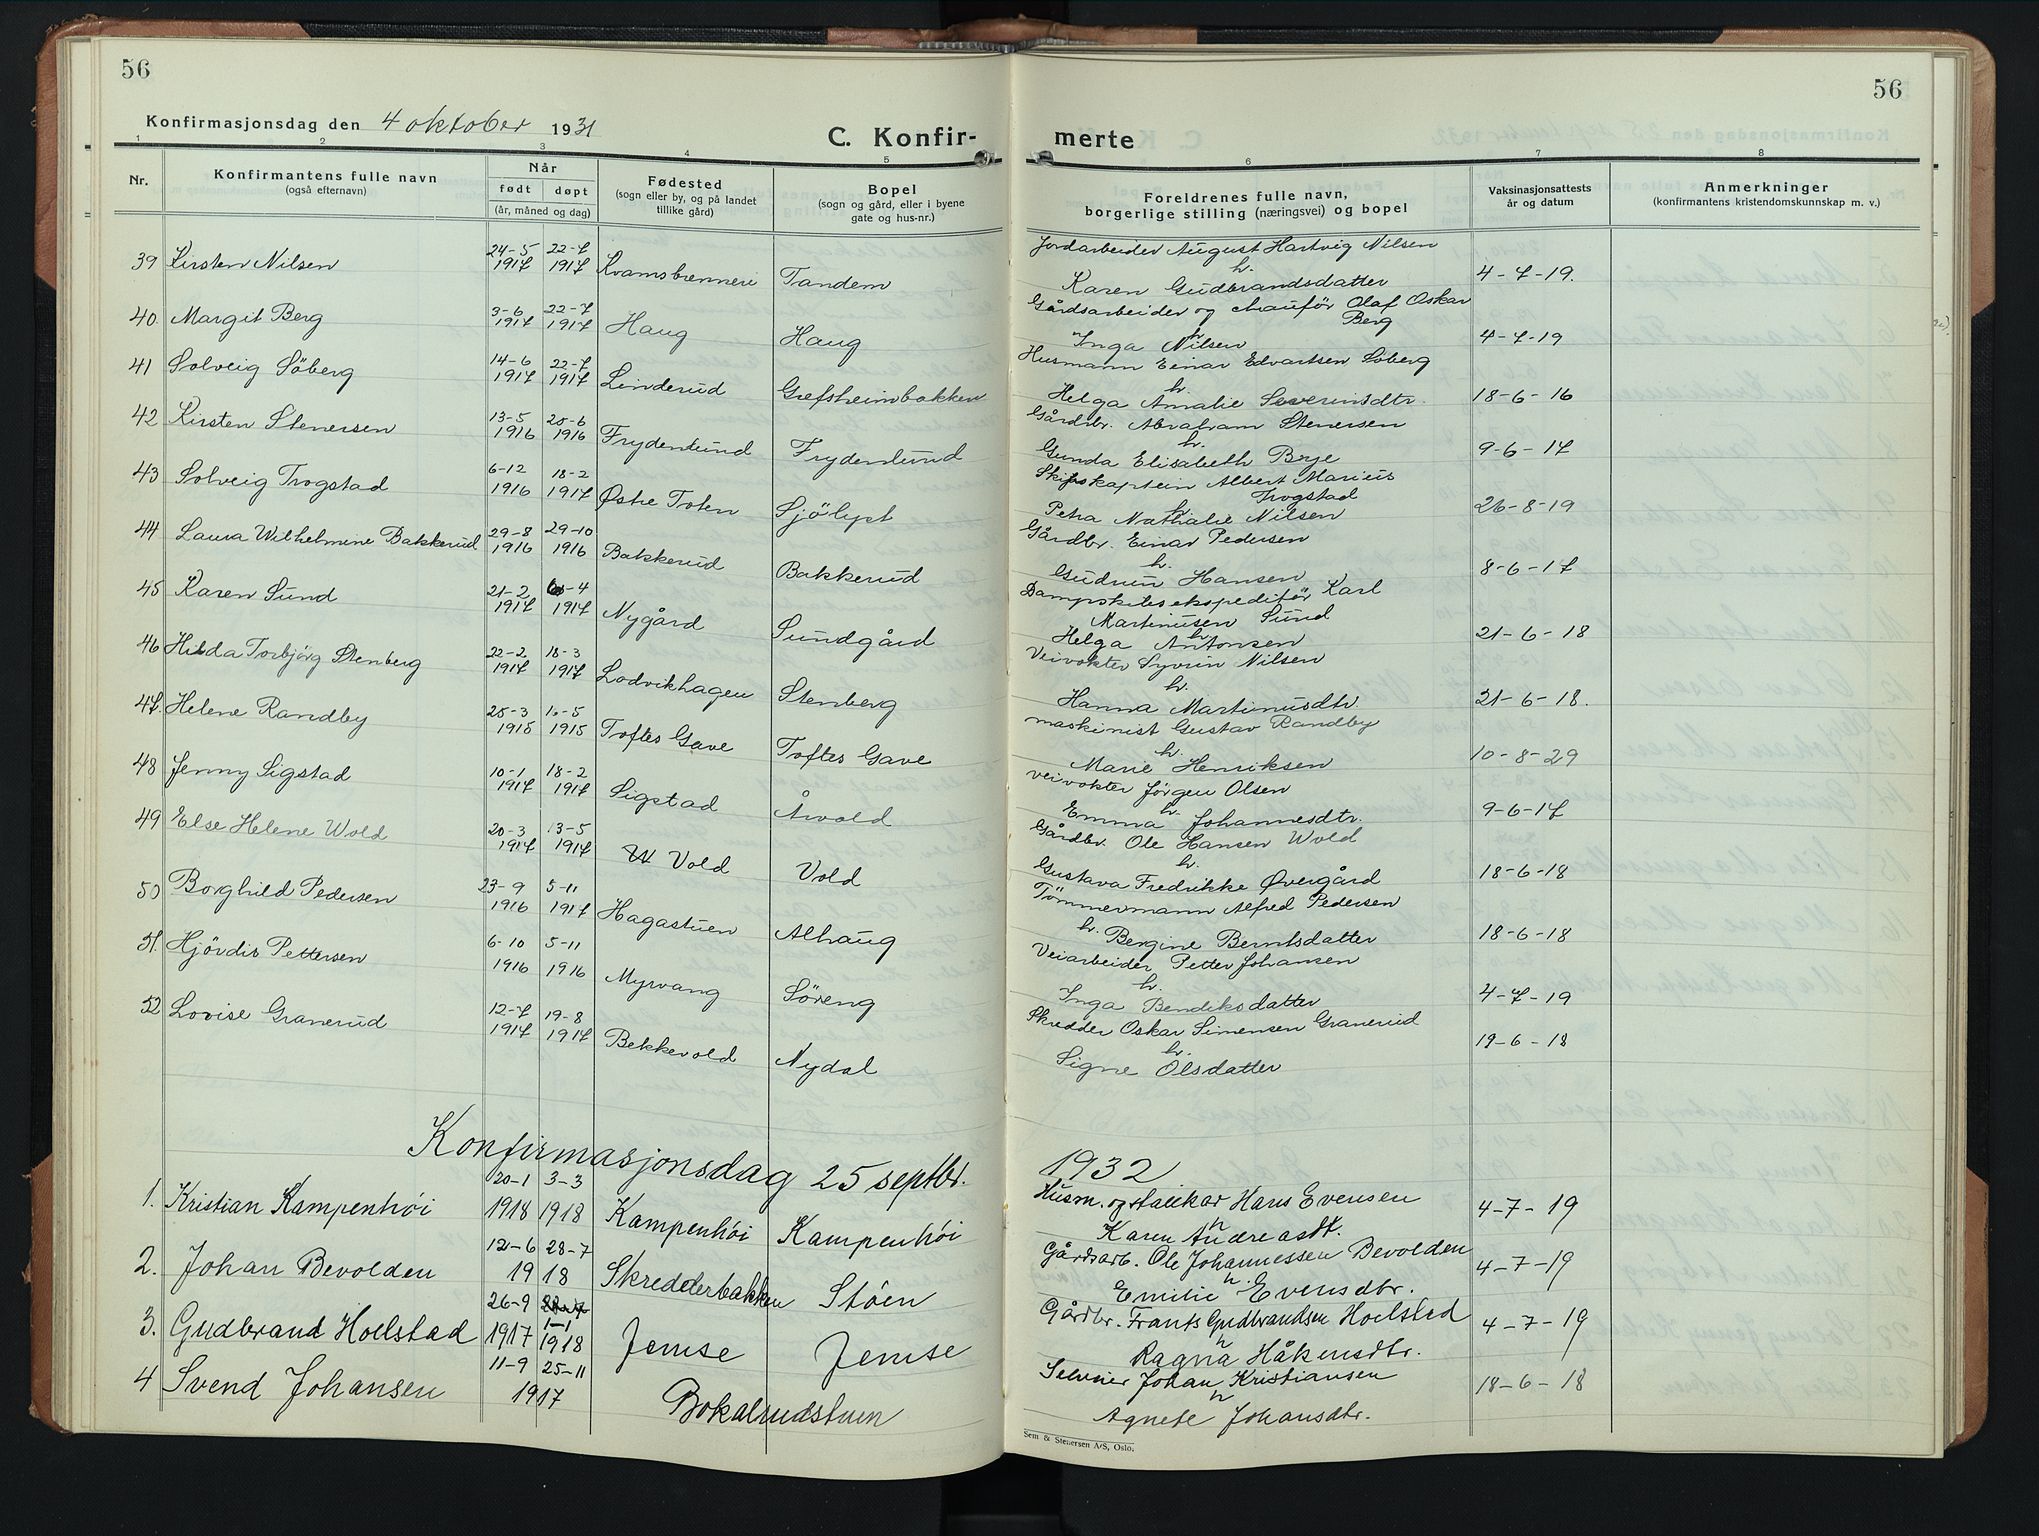 56
56
Konfirmasjonsdag den 4 oktober 1931
C. Konfir-
merte
1 2 3 4 5 6 7 8
Nr.
Konfirmantens fulle navn
(også efternavn)
Når
født døpt
(år, måned og dag)
Fødested
(sogn eller by, og på landet
tillike gård)
Bopel
(sogn og gård, eller i byene
gate og hus-nr.)
Foreldrenes fulle navn,
borgerlige stilling (næringsvei) og bopel
Vaksinasjonsattests
år og datum
Anmerkninger
(konfirmantens kristendomskunnskap m. v.)
39 Kirsten Nilsen 24-5 1917 22-7 1917 Kvamsbrenneri Tandem
Jordarbeider August Hartvig Nilsen
h.
Karen Gudbrandsdatter
4-7-19.
40. Margit Berg 3-6 1917 22-7 1917 Haug Haug
Gårdsarbeider og chauför Olaf Oskar
Berg
h
Inga Nilsen
4-7-19
41 Solveig Söberg 14-6 1917 22-7 1917 Linderud Grefsheimbakken
Husmann Einar Edvartsen Söberg
h.
Helga Amalie Severinsdtr.
18-6-16
42 Kirsten Stenersen 13-5 1916 25-6 1916 Frydenlund Frydenlund
Gårdbr. Abraham Stenersen
h.
Gunda Elisabeth Brye
9-6-17
43 Solveig Trogstad 6-12 1916 18-2 1917 Østre Toten Sjölyst
Skipskaptein Albert Marius
Trogstad
h
Petra Nathalie Nilsen
26-8-19
44 Laura Wilhelmine Bakkerud 29-8 1916 29-10 1916 Bakkerud Bakkerud
Gårdbr. Einar Pedersen
h.
Gudrun Hansen
8-6-17
45 Karen Sund 21-2 1917 6-4 1917 Nygård Sundgård
Dampskibsekspeditör Karl
Martinusen Sund
h
Helga Antonsen
21-6-18
46 Hilda Torbjörg Stenberg 22-2 1917 18-3 1917 Lodvikhagen Stenberg
Veivokter Syvrin Nilsen
h.
Hanna Martinusdtr.
21-6-18.
47. Helene Randby 25-3 1915 16-5 1915 Toftes Gave Toftes Gave
maskinist Gustav Randby
h.
Marie Henriksen
10-8-29
48 Jenny Sigstad 10-1 1917 18-2 1917 Sigstad Årvold
veivokter Jörgen Olsen
h.
Emma Johannesdtr.
9-6-17
49 Else Helene Wold 20-3 1917 13-5 1917 Vold Vold
Gårdbr. Ole Hansen Wold
h.
Gustava Fredrikke Øvergård
18-6-18
50 Borghild Pedersen 23-9 1916 5-11 1917 Hagastuen Alhaug
Tömmermann Alfred Pedersen
h.
Bergine Berntsdatter
18-6-18
51. Hjördis Pettersen 6-10 1916 5-11 1916 Myrvang Söreng
Veiarbeider Petter Johansen
h.
Inga Bendiksdatter
4-7-19
52 Lovise Granerud 12-7 1917 19-8 1917 Bekkevold Nydal
Skredder Oskar Simensen Granerud
h.
Signe Olsdatter
19-6-18
Konfirmasjonsdag 25 septbr. 1932
1. Kristian Kampenhöi 20-1 1918 3-3 1918 Kampenhöi Kampenhöi
Husm. og stallkar Hans Evensen
h
Karen Andreasdt.
4-7-19
2. Johan Bevolden 12-6 28-7 1918 Skredderbakken Stöen
Gårdsarb. Ole Johannessen Bevolden
h.
Emilie Evensdtr.
4-7-19
3. Gudbrand Hoelstad 26-9 1917 1-1 1918 Jemse Jemse
Gårdbr. Frants Gudbrandsen Hoelstad
h
Ragna Håkensdtr.
4-7-19
4 Svend Johansen 11-9 25-11 1917 Bokalrudstuen
Selveier Johan Kristiansen
h
Agnete Johansdtr.
18-6-18
Sem & Stenersen A/S, Oslo.